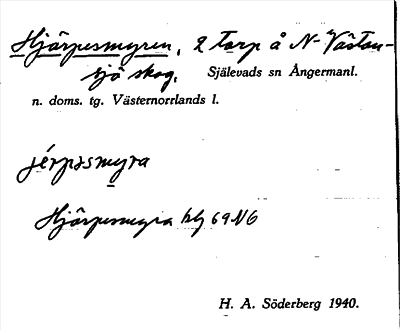 Hjärpesmyren, 2 torp å N. Västan-
sjö skog. Själevads sn Ångermanl.
n. doms. tg. Västernorrlands l.
jérpsmyra
Hjärpesmyra blg 69 N6
H. A. Söderberg 1940.